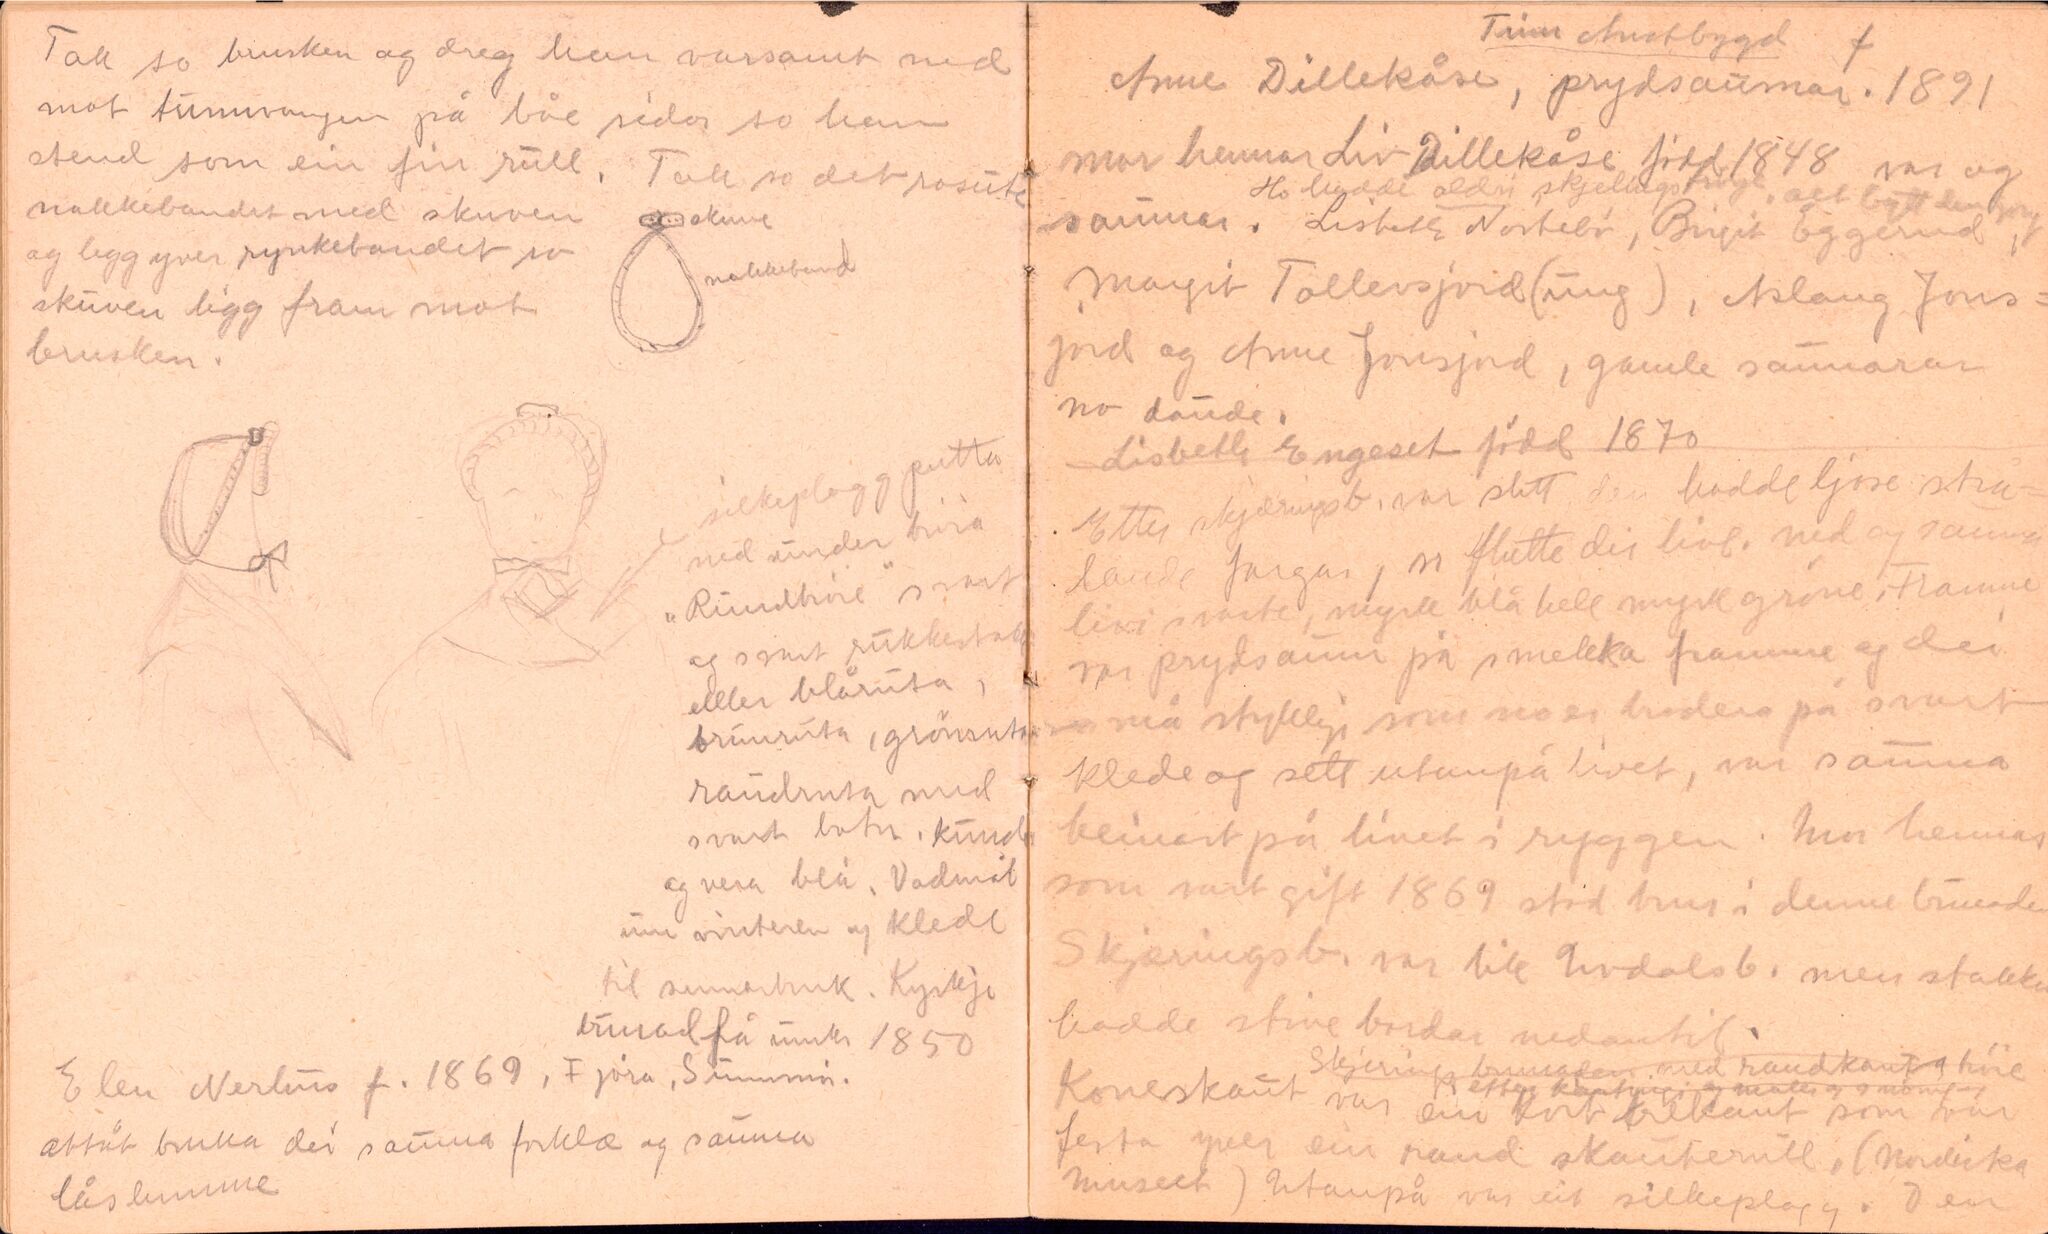 Tak so brusken og dreg han varsamt ned
mot tunnvangen på båe sidor so han
stend som ein fin rull. Tak so det rosute
nakkebandet med skuven
og legg yver rynkebandet so
skuven ligg fram mot
brusken.
skuve
nakkeband
silkeplagg putta
ned under tröia
"Rundtröie" svart
og svart rukkestakk
eller blåruta,
brunruta, grönruta
raudruta med
svart botn. kunde
og vera blå. Vadmål
um vinteren og klede
til sumarbruk. Kyrkje
bunad få umkr 1850
Elen Nerhus f. 1869, Fjöra, Sunnmör.
attåt bruka dei sauma forklæ og sauma
låslumme
Tinn Austbygd
Anne Dillekåse, prydsaumar. f 1891
mor hennar Liv Dillekåse född 1848 var og
Ho hadde aldri skjeringströye
saumar. Lisbeth Nortebö, Birgit Eggerud,
Margit Tollevsjord (ung), Aslaug Jons=
jord og Anne Jonsjord, gamle saumarar
no daude.
Lisbeth Engeset född 1870
Etter skjæringsb. var slett den hadde ljose strå=
lande fargar, so flutte dei livl. ned og sauma
livi svarte, myrk blå hell myrk gröne. Framme
var prydsaum på smekka framme og dei
små stykkji som no er brodera på svart
klede og sett utanpå livet, var sauma
beinast på livet i ryggen. Mor hennas
som vart gift 1869 stod brur i denne bunaden
Skjæringsb. var lik Uvdalsb. men stakken
hadde stive bordar nedantil.
Skjerings bunaden med raudkant og tröie
Koneskaut var ein kort trekant som var
festa yver ein raud skauterull, (Nordiska
Museet) Utanpå var eit silkeplagg. Den